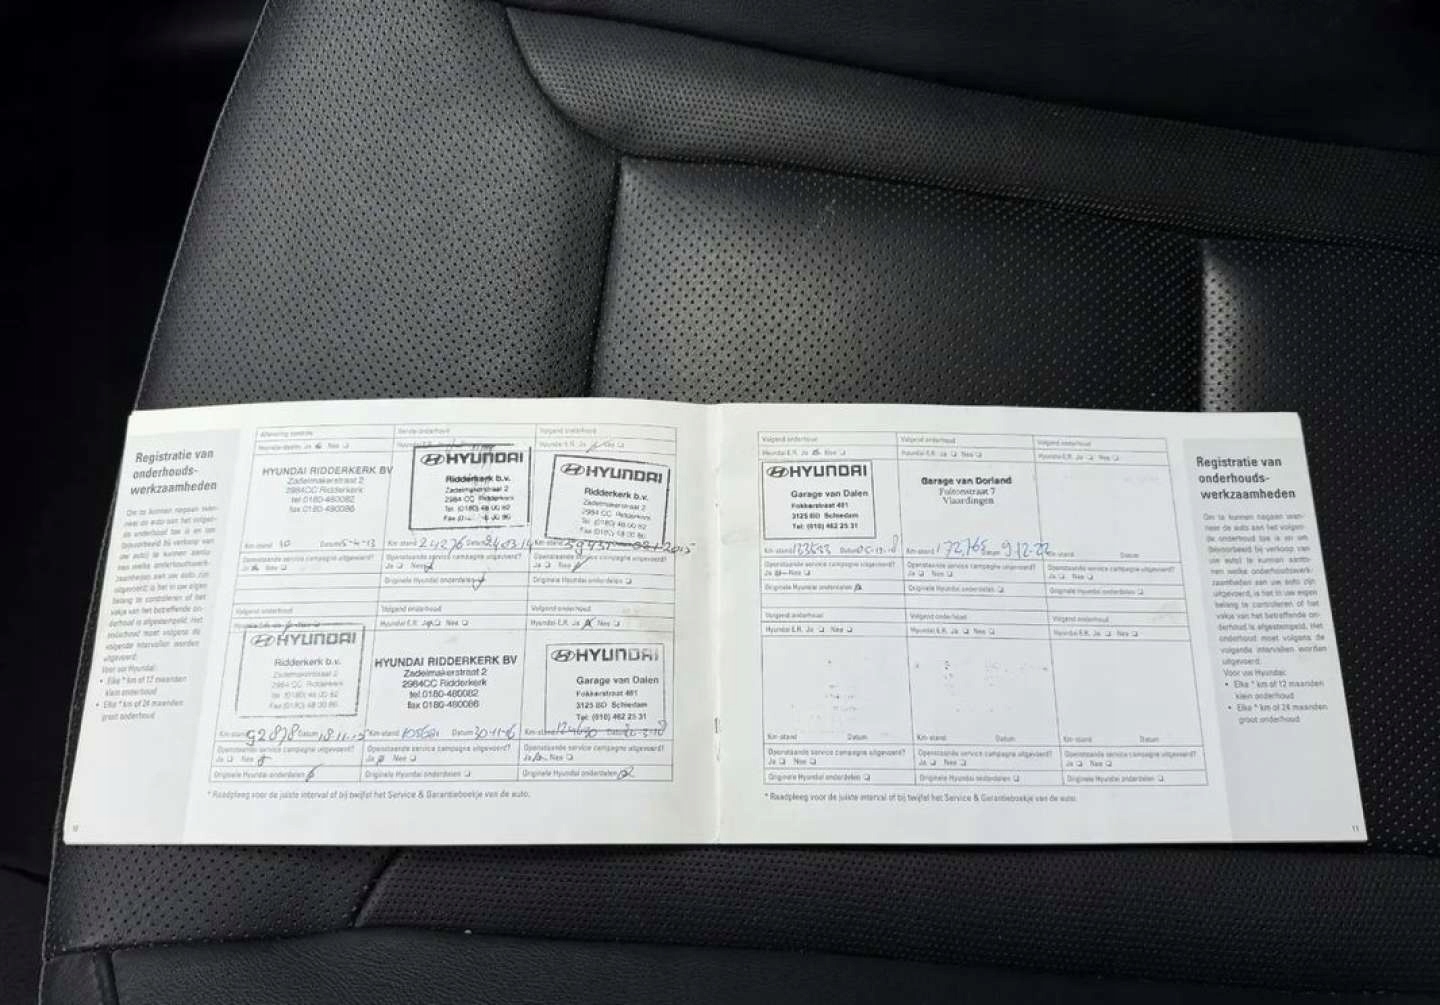 Registratie van
onderhouds-
werkzaamheden
Om te kunnen nagaan wan-
neer de auto aan het volgen-
de onderhoud toe is en om
(bijvoorbeeld bij verkoop van
uw auto) te kunnen aanto-
nen welke onderhoudswerk-
zaamheden aan uw auto zijn
uitgevoerd, is het in uw eigen
belang te controleren of het
vakje van het betreffende on-
derhoud is afgestempeld. Het
onderhoud moet volgens de
volgende intervallen worden
uitgevoerd:
Voor uw Hyundai:
• Elke * km of 12 maanden
klein onderhoud
• Elke * km of 24 maanden
groot onderhoud
Aflevering controle
Ja Nee
HYUNDAI RIDDERKERK BV
Zadelmakerstraat 2
2984CC Ridderkerk
tel.0180-480082
fax.0180-480086
Km-stand 10 Datum 5-4-13
Openstaande service campagne uitgevoerd?
Ja Nee
Eerste onderhoud
HYUNDAI
Ridderkerk b.v.
Zadelmakerstraat 2
2984 CC Ridderkerk
Tel. (0180) 48 00 82
Km-stand 24276 Datum 24.03.14
Openstaande service campagne uitgevoerd?
Ja Nee
Originele Hyundai onderdelen
Volgend onderhoud
Hyundai E.R. Ja Nee
HYUNDAI
Ridderkerk b.v.
Zadelmakerstraat 2
2984 CC Ridderkerk
Tel. (0180) 48 00 82
Fax (0180) 48 00 86
Km-stand
Openstaande service campagne uitgevoerd?
Ja Nee
Originele Hyundai onderdelen
Volgend onderhoud
HYUNDAI
Ridderkerk b.v.
Zadelmakerstraat 2
2984 CC Ridderkerk
Tel. (0180) 48 00 82
Fax (0180) 48 00 86
Km-stand 92878 Datum 18.11.15
Openstaande service campagne uitgevoerd?
Ja Nee
Originele Hyundai onderdelen
Volgend onderhoud
Hyundai E.R. Ja Nee
HYUNDAI RIDDERKERK BV
Zadelmakerstraat 2
2984CC Ridderkerk
tel.0180-480082
fax 0180-480086
Km-stand Datum 30-11-16
Openstaande service campagne uitgevoerd?
Ja Nee
Originele Hyundai onderdelen
Volgend onderhoud
Hyundai E.R. Ja Nee
HYUNDAI
Garage van Dalen
Fokkerstraat 481
3125 BD Schiedam
Tel: (010) 462 25 31
Km-stand Datum
Openstaande service campagne uitgevoerd?
Ja Nee
Originele Hyundai onderdelen
* Raadpleeg voor de juiste interval of bij twijfel het Service & Garantieboekje van de auto.
Volgend onderhoud
Hyundai E.R. Ja Nee
HYUNDAI
Garage van Dalen
Fokkerstraat 481
3125 BD Schiedam
Tel: (010) 462 25 31
Km-stand Datum
Openstaande service campagne uitgevoerd?
Ja Nee
Originele Hyundai onderdelen
Volgend onderhoud
Hyundai E.R. Ja Nee
Garage van Dorland
Fultonstraat 7
Vlaardingen
Km-stand 172765 Datum 9-12-22
Openstaande service campagne uitgevoerd?
Ja Nee
Originele Hyundai onderdelen
Volgend onderhoud
Hyundai E.R. Ja Nee
Km-stand Datum
Openstaande service campagne uitgevoerd?
Ja Nee
Originele Hyundai onderdelen
Volgend onderhoud
Hyundai E.R. Ja Nee
Km-stand Datum
Openstaande service campagne uitgevoerd?
Ja Nee
Originele Hyundai onderdelen
Volgend onderhoud
Hyundai E.R. Ja Nee
Km-stand Datum
Openstaande service campagne uitgevoerd?
Ja Nee
Originele Hyundai onderdelen
Volgend onderhoud
Hyundai E.R. Ja Nee
Km-stand Datum
Openstaande service campagne uitgevoerd?
Ja Nee
Originele Hyundai onderdelen
* Raadpleeg voor de juiste interval of bij twijfel het Service & Garantieboekje van de auto.
Registratie van
onderhouds-
werkzaamheden
Om te kunnen nagaan wan-
neer de auto aan het volgen-
de onderhoud toe is en om
(bijvoorbeeld bij verkoop van
uw auto) te kunnen aanto-
nen welke onderhoudswerk-
zaamheden aan uw auto zijn
uitgevoerd, is het in uw eigen
belang te controleren of het
vakje van het betreffende on-
derhoud is afgestempeld. Het
onderhoud moet volgens de
volgende intervallen worden
uitgevoerd:
Voor uw Hyundai:
• Elke * km of 12 maanden
klein onderhoud
• Elke * km of 24 maanden
groot onderhoud
11